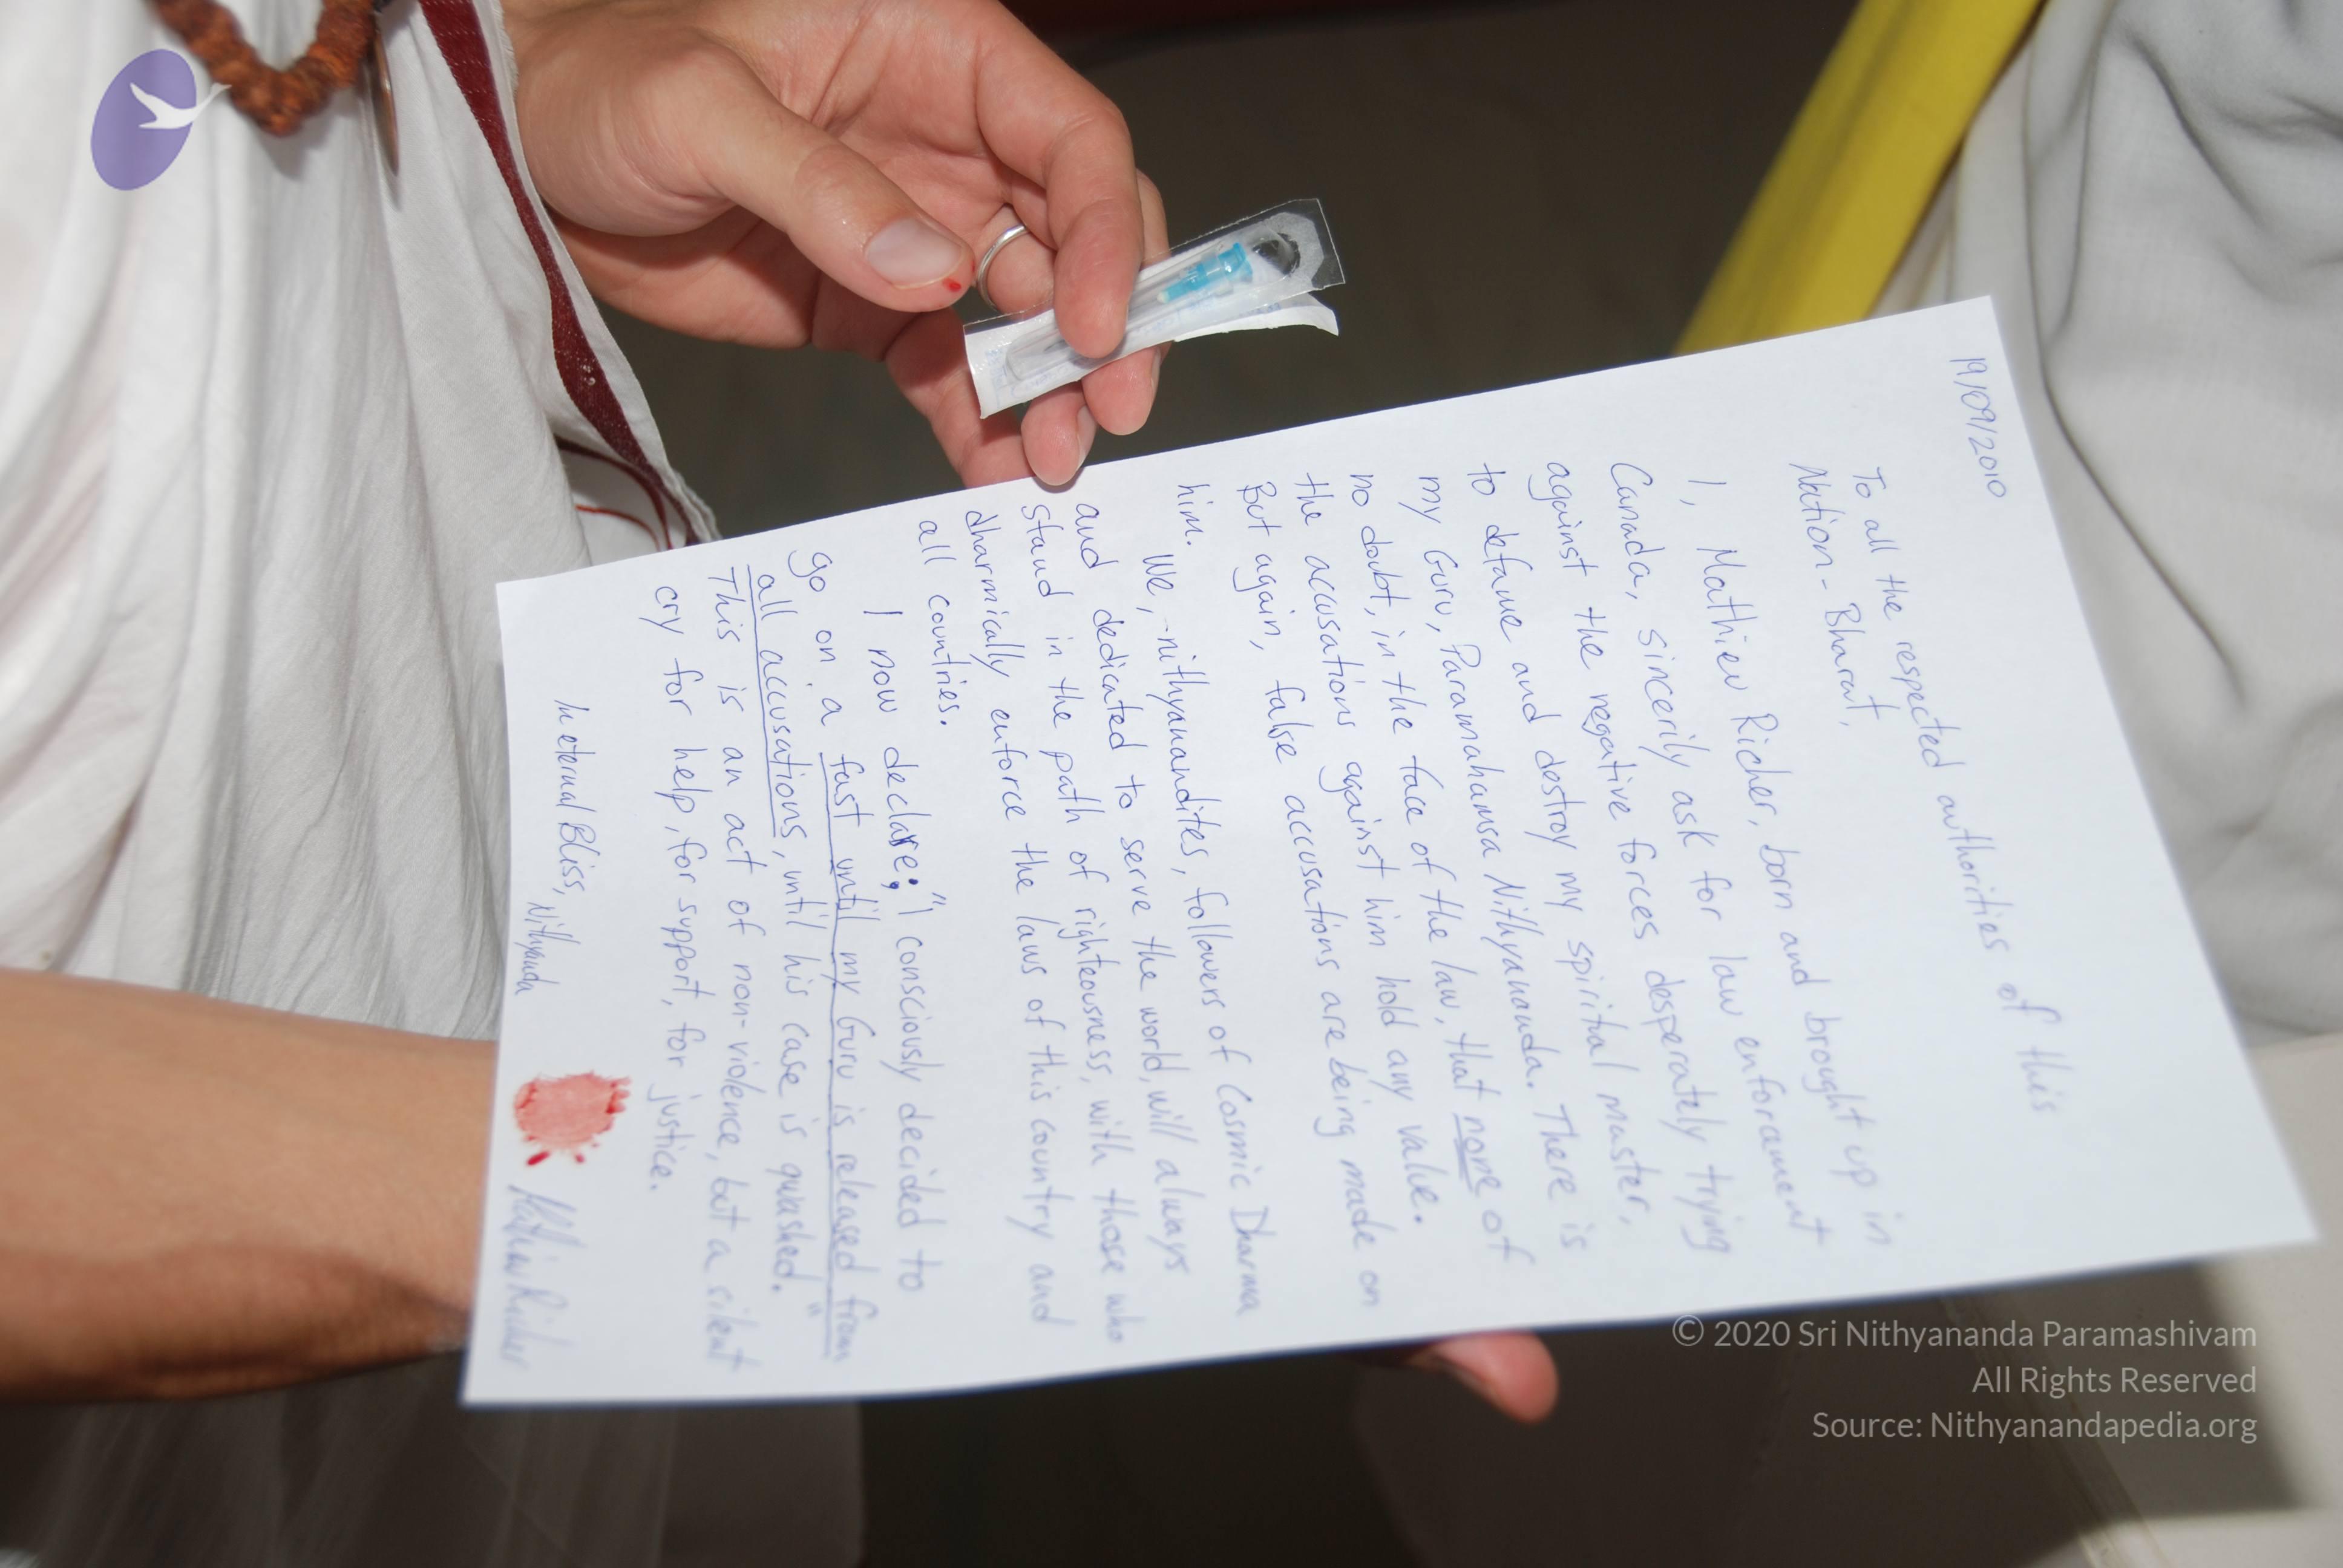 19/09/2010
To all the respected authorities of this
Nation - Bharat,
I, Mathieu Richer, born and brought up in
Canada, sincerily ask for law enforcment
against the negative forces desperately trying
to defame and destroy my spiritual master,
my Guru, Paramahamsa Nithyananda. There is
no doubt, in the face of the law, that none of
the accusations against him hold any value.
But again, false accusations are being made on
him.
We, nithyanandites, followers of Cosmic Dharma
and dedicated to serve the world, will always
stand in the path of righteousness, with those who
dharmically enforce the laws of this country and
all countries.
I now declare; "I consciously decided to
go on a fast until my Guru is released from
all accusations, until his case is quashed."
This is an act of non-violence, but a silent
cry for help, for support, for justice.
In eternal Bliss, Nithyanda
Mathieu Richer
© 2020 Sri Nithyananda Paramashivam
All Rights Reserved
Source: Nithyanandapedia.org